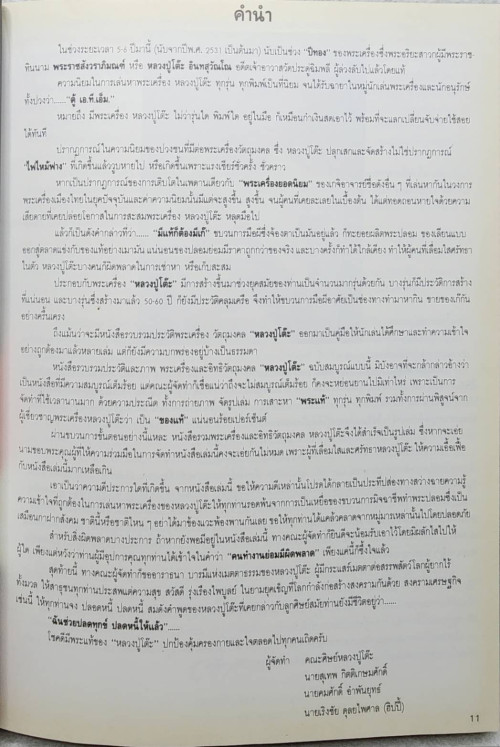 คำนำ
ในช่วงระยะเวลา 5-6 ปีมานี้ (นับจากปีพ.ศ. 2531 เป็นต้นมา) นับเป็นช่วง "ปีทอง" ของพระเครื่องซึ่งพระอริยะสาวกผู้มีพระราช-
ทินนาม พระราชสังวราภิมณฑ์ หรือ หลวงปู่โต๊ะ อินทสุวัณโณ อดีตเจ้าอาวาสวัดประดู่ฉิมพลี ผู้ล่วงลับไปแล้วโดยแท้
ความนิยมในการเล่นหาพระเครื่อง หลวงปู่โต๊ะ ทุกรุ่น ทุกพิมพ์เป็นที่นิยม จนได้รับฉายาในหมู่นักเล่นพระเครื่องและนักอนุรักษ์
ทั้งปวงว่า......"ตู้ เอ.ที.เอ็ม."
หมายถึง มีพระเครื่อง หลวงปู่โต๊ะ ไม่ว่ารุ่นใด พิมพ์ใด อยู่ในมือ ก็เหมือนกำเงินสดเอาไว้ พร้อมที่จะแลกเปลี่ยนจับจ่ายใช้สอย
ได้ทันที
ปรากฏการณ์ในความนิยมของปวงชนที่มีต่อพระเครื่องวัตถุมงคล ซึ่ง หลวงปู่โต๊ะ ปลุกเสกและจัดสร้างไม่ใช่ปรากฏการณ์
"ไฟไหม้ฟาง" ที่เกิดขึ้นแล้ววูบหายไป หรือเกิดขึ้นเพราะแรงเชียร์ชั่วครั้ง ชั่วคราว
หากเป็นปรากฏการณ์ของการเติบโตในเพดานเดียวกับ "พระเครื่องยอดนิยม" ของเกจิอาจารย์ชื่อดังอื่น ๆ ที่เล่นหากันในวงการ
พระเครื่องเมืองไทยในยุคปัจจุบันและค่าความนิยมนั้นมีแต่จะสูงขึ้น สูงขึ้น จนผู้คนที่เคยละเลยในเบื้องต้น ได้แต่ทอดถอนหายใจด้วยความ
เสียดายที่เคยปล่อยโอกาสในการสะสมพระเครื่อง หลวงปู่โต๊ะ หลุดมือไป
แล้วก็เป็นดังคำกล่าวที่ว่า...... "มีแท้ก็ต้องมีเก๊" ขบวนการมือผีซึ่งจ้องตาเป็นมันอยู่แล้ว ก็ทะยอยผลิตพระปลอม ของเลียนแบบ
ออกสู่ตลาดแข่งกับของแท้อย่างเมามัน แน่นอนของปลอมย่อมมีราคาถูกกว่าของจริง และบางครั้งก็ทำได้ใกล้เคียง ทำให้ผู้คนที่เลื่อมใสศรัทธา
ในตัว หลวงปู่โต๊ะบางคนก็ผิดพลาดในการเช่าหา หรือเก็บสะสม
ประกอบกับพระเครื่อง "หลวงปู่โต๊ะ" มีการสร้างขึ้นมาช่วงยุคสมัยของท่านเป็นจำนวนมากรุ่นด้วยกัน บางรุ่นก็มีประวัติการสร้าง
ที่แน่นอน และบางรุ่นซึ่งสร้างมาแล้ว 50-60 ปี ก็ยังมีประวัติคลุมเครือ จึงทำให้ขบวนการมือผีอาศัยเป็นช่องทางทำมาหากิน ขายของเก๊กัน
อย่างครื้นเครง
ถึงแม้นว่าจะมีหนังสือรวบรวมประวัติพระเครื่อง วัตถุมงคล "หลวงปู่โต๊ะ" ออกมาเป็นคู่มือให้นักเล่นได้ศึกษาและทำความเข้าใจ
อย่างถูกต้องมาแล้วหลายเล่ม แต่ก็ยังมีความบกพร่องอยู่บ้างเป็นธรรมดา
หนังสือรวบรวมประวัติและภาพ พระเครื่องและอิทธิวัตถุมงคล "หลวงปู่โต๊ะ" ฉบับสมบูรณ์แบบนี้ มิบังอาจที่จะกล้ากล่าวอ้างว่า
เป็นหนังสือที่มีความสมบูรณ์เต็มร้อย แต่คณะผู้จัดทำก็เชื่อแน่ว่าถึงจะไม่สมบูรณ์เต็มร้อย ก็คงจะหย่อนยานไปมิเท่าไหร่ เพราะเป็นการ
จัดทำที่ใช้เวลานานมาก ด้วยความประณีต ทั้งการถ่ายภาพ จัดรูปเล่ม การเสาะหา "พระแท้" ทุกรุ่น ทุกพิมพ์ รวมทั้งการผ่านพิสูจน์จาก
ผู้เชี่ยวชาญพระเครื่องหลวงปู่โต๊ะว่า เป็น "ของแท้" แน่นอนร้อยเปอร์เซ็นต์
ผ่านขบวนการขั้นตอนอย่างนี้แหละ หนังสือรวมพระเครื่องและอิทธิวัตถุมงคล หลวงปู่โต๊ะจึงได้สำเร็จเป็นรูปเล่ม ซึ่งหากจะเอย
นามขอบพระคุณผู้ที่ให้ความร่วมมือในการจัดทำหนังสือเล่มนี้คงจะเอยกันไม่หมด เพราะผู้ที่เลื่อมใสและศรัทธาหลวงปู่โต๊ะ ให้ความเอื้อเฟื้อ
กับหนังสือเล่มนี้มากเหลือเกิน
เอาเป็นว่าความดีประการใดที่เกิดขึ้น จากหนังสือเล่มนี้ ขอให้ความดีเหล่านั้นโปรดได้กลายเป็นประทีปส่องทางสว่างฉายความรู้
ความเข้าใจที่ถูกต้องในการเล่นหาพระเครื่องของหลวงปู่โต๊ะ ให้ทุกท่านรอดพ้นจากการเป็นเหยื่อของขบวนการมิจฉาชีพทำพระปลอมซึ่งเป็น
เสมือนกาฝากสังคม ชาตินี้หรือชาติไหน ๆ อย่าได้มาข้องแวะพ้องพานกันเลย ขอให้ทุกท่านได้แคล้วคลาดจากหมู่มารเหล่านั้นไปโดยปลอดภัย
สำหรับสิ่งผิดพลาดบางประการ ถ้าหากยังพอมีอยู่ในหนังสือเล่มนี้ ทางคณะผู้จัดทำก็ยินดีจะน้อมรับเอาไว้โดยมิผลักไสไปให้
ผู้ใด เพียงแต่หวังว่าท่านผู้มีอุปการคุณทุกท่านได้เข้าใจในคำว่า "คนทำงานย่อมมีผิดพลาด" เพียงแค่นี้ก็ซึ้งใจแล้ว
สุดท้ายนี้ ทางคณะผู้จัดทำก็ขออาราธนา บารมีแห่งเมตตาธรรมของหลวงปู่โต๊ะ ผู้มีกระแสร์เมตตาต่อสรรพสัตว์โลกผู้ยากไร้
ทั้งมวล ให้สาธุชนทุกท่านประสพแต่ความสุข สวัสดี รุ่งเรืองไพบูลย์ ในยามยุคเข็ญที่โลกกำลังก่อสร้างสงครามกันด้วย สงครามเศรษฐกิจ
เช่นนี้ ให้ทุกท่านจง ปลอดหนี้ ปลดหนี้ สมดังคำพูดของหลวงปู่โต๊ะที่เคยกล่าวกับลูกศิษย์สมัยท่านยังมีชีวิตอยู่ว่า......
"ฉันช่วยปลดทุกข์ ปลดหนี้ให้แล้ว"......
โชคดีมีพระแท้ของ "หลวงปู่โต๊ะ" ปกป้องคุ้มครองกายและใจตลอดไปทุกคนเถิดครับ
ผู้จัดทำ คณะศิษย์หลวงปู่โต๊ะ
นายสุเทพ กิตติเกษมศักดิ์
นายคมศักดิ์ อำพันยุทธ์
นายเริงชัย ดุลยไพศาล (ฮิปปี้)
11